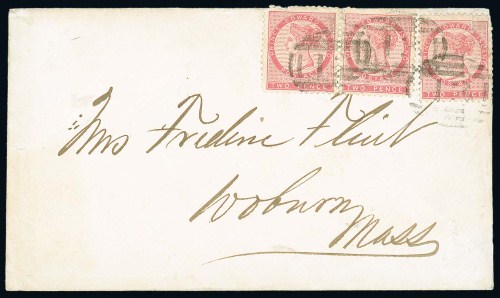 EDWARD
TWO PENCE TWO PENCE TWO PENCE
Mrs Fredine Flint
Woburn
Mass